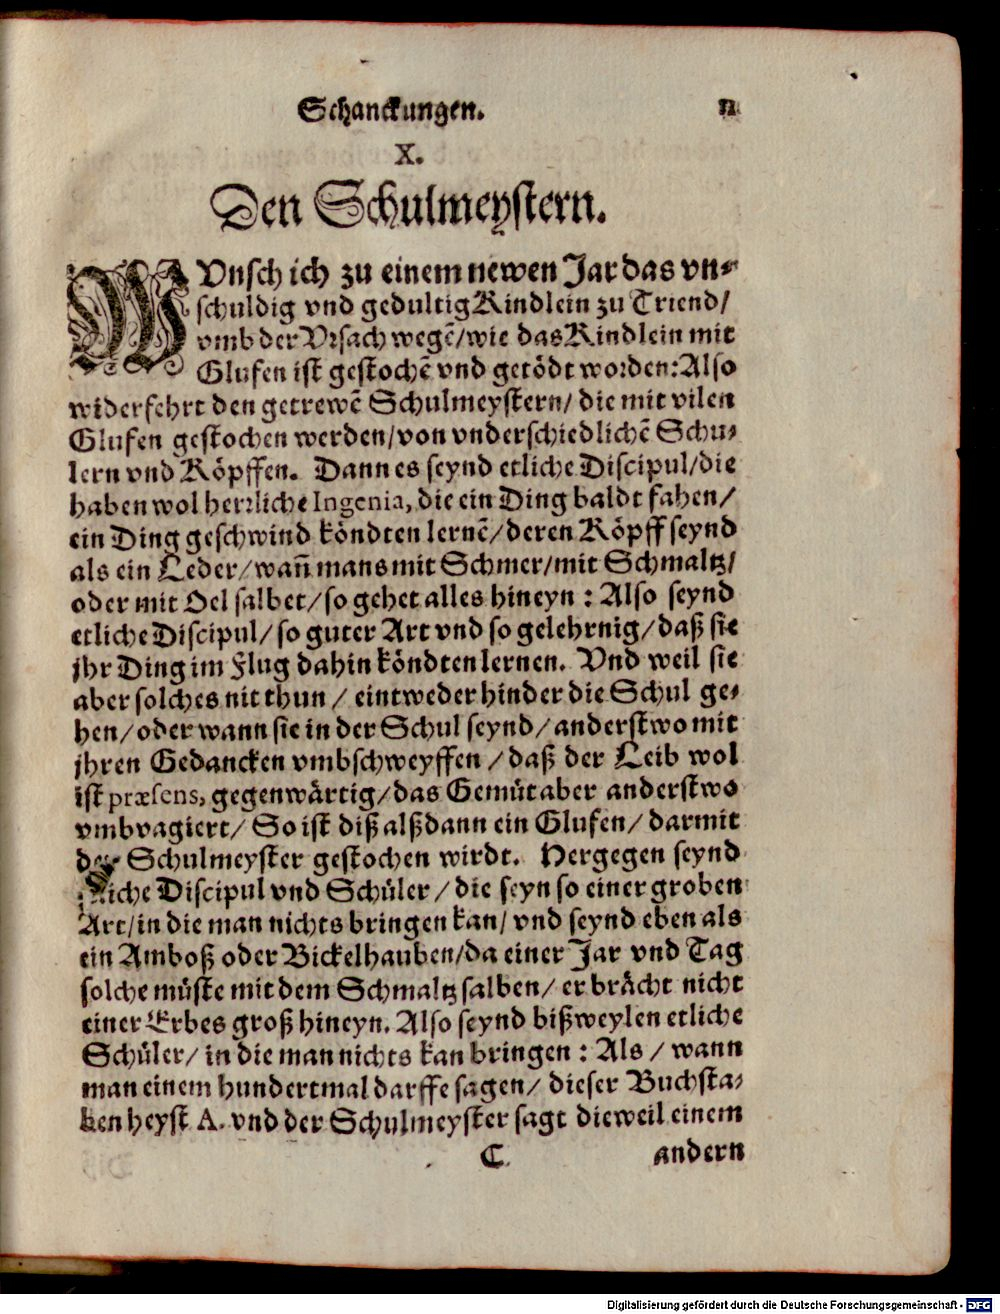 Schanckungen. 11
X.
Den Schulmeystern.
WUnsch ich zu einem newen Jar das vn⸗
schuldig vnd gedultig Kindlein zu Triend/
vmb der Vrsach wegẽ/wie das Kindlein mit
Glufen ist gestochẽ vnd getödt worden: Also
widerfehrt den getrewẽ Schulmeystern/ die mit vilen
Glufen gestochen werden/von vnderschiedlichẽ Schu⸗
lern vnd Köpffen. Dann es seynd etliche Discipul/die
haben wol herrliche Ingenia, die ein Ding baldt fahen/
ein Ding geschwind köndten lernẽ/deren Köpff seynd
als ein Leder/wañ mans mit Schmer/mit Schmaltz/
oder mit Oel salbet/so gehet alles hineyn : Also seynd
etliche Discipul/ so guter Art vnd so gelehrnig/daß sie
jhr Ding im Flug dahin köndten lernen. Vnd weil sie
aber solches nit thun / eintweder hinder die Schul ge⸗
hen/oder wann sie in der Schul seynd/anderstwo mit
jhren Gedancken vmbschweyffen /daß der Leib wol
ist præsens, gegenwärtig/das Gemüt aber anderstwo
vmbvagiert/ So ist diß alßdann ein Glufen/ darmit
der Schulmeyster gestochen wirdt. Hergegen seynd
etliche Discipul vnd Schüler / die seyn so einer groben
Art/in die man nichts bringen kan/ vnd seynd eben als
ein Amboß oder Bickelhauben/da einer Jar vnd Tag
solche müste mit dem Schmaltz salben/ er brächt nicht
einer Erbes groß hineyn. Also seynd bißweylen etliche
Schüler/ in die man nichts kan bringen : Als / wann
man einem hundertmal darffe sagen/ dieser Buchsta⸗
ben heyst A. vnd der Schulmeyster sagt dieweil einem
C andern
Digitalisierung gefördert durch die Deutsche Forschungsgemeinschaft - DFG